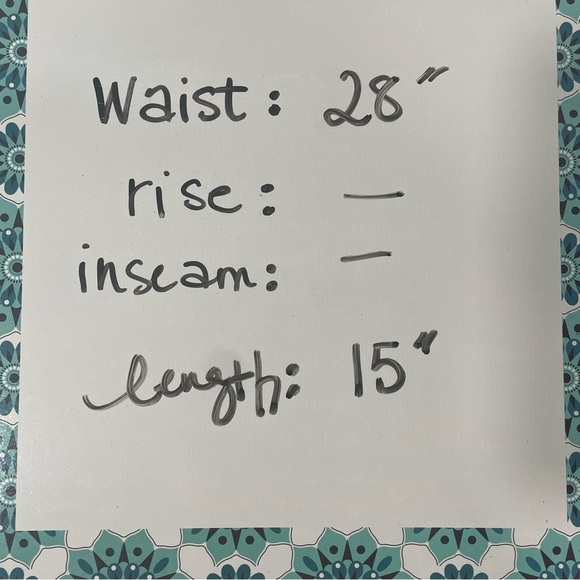 Waist: 28"
rise: —
inseam: —
length: 15"